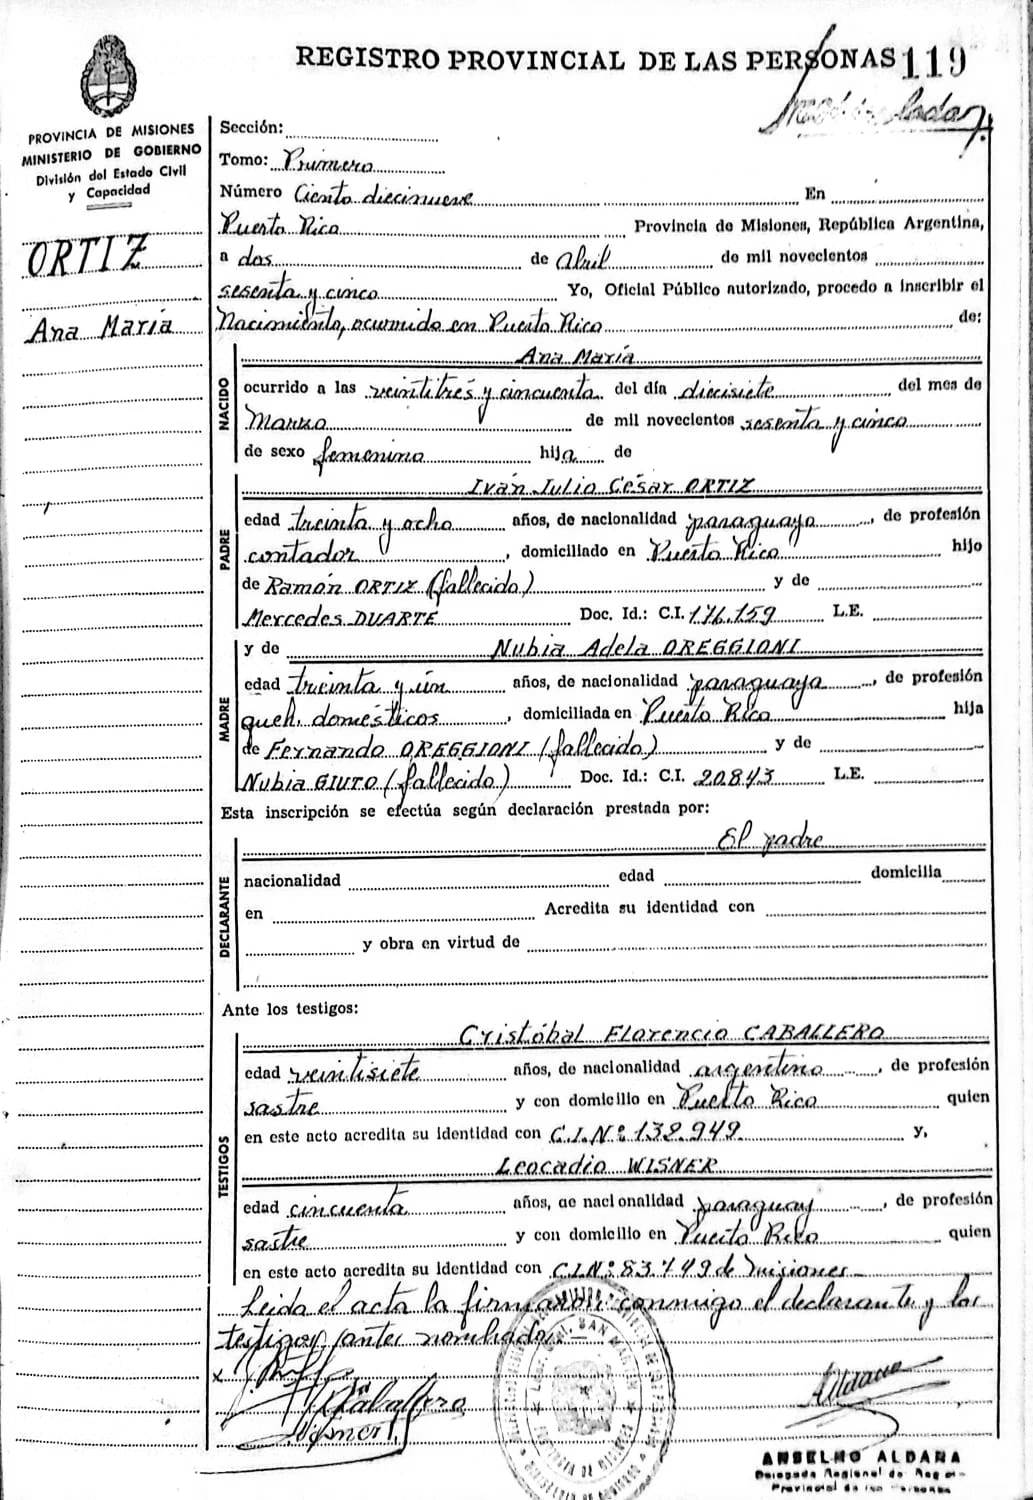 REGISTRO PROVINCIAL DE LAS PERSONAS 119
PROVINCIA DE MISIONES
MINISTERIO DE GOBIERNO
División del Estado Civil
y Capacidad
ORTIZ
Ana María
Sección:
Tomo: Primero
Número Ciento diecinueve En
Puerto Rico Provincia de Misiones, República Argentina,
a dos de Abril de mil novecientos
sesenta y cinco Yo, Oficial Público autorizado, procedo a inscribir el
Nacimiento, ocurrido en Puerto Rico de:
NACIDO
Ana María
ocurrido a las veintitrés y cincuenta del día diecisiete del mes de
Marzo de mil novecientos sesenta y cinco
de sexo femenino hija de
PADRE
Iván Julio César ORTIZ
edad treinta y ocho años, de nacionalidad paraguayo, de profesión
contador, domiciliado en Puerto Rico hijo
de Ramón ORTIZ (fallecido) y de
Mercedes DUARTE Doc. Id.: C.I. 176.159 L.E.
MADRE
y de Nubia Adela OREGGIONI
edad treinta y ún años, de nacionalidad paraguaya, de profesión
queh. domésticos, domiciliada en Puerto Rico hija
de Fernando OREGGIONI (fallecido) y de
Nubia GIUTO (fallecido) Doc. Id.: C.I. 20.843 L.E.
Esta inscripción se efectúa según declaración prestada por:
DECLARANTE
El padre
nacionalidad edad domicilia
en Acredita su identidad con
y obra en virtud de
Ante los testigos:
TESTIGOS
Cristóbal Florencio CABALLERO
edad veintisiete años, de nacionalidad argentino, de profesión
sastre y con domicilio en Puerto Rico quien
en este acto acredita su identidad con C.I.Nº 138.949 y,
Leocadio WISNER
edad cincuenta años, de nacionalidad paraguay, de profesión
sastre y con domicilio en Puerto Rico quien
en este acto acredita su identidad con C.I.Nº 83.749 de Misiones
Leida el acta la firmaron conmigo el declarante y los
testigos antes nombrados.
Caballero
Wisner
Aldana
ANSELMO ALDANA
Delegado Regional de
Provincial de las Personas